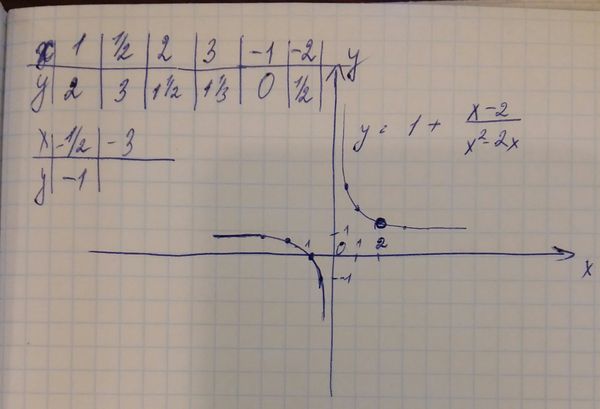 x 1 1/2 2 3 -1 -2
y 2 3 1 1/2 1 1/3 0 1/2
x -1/2 -3
y -1
y
y = 1 + x-2 / x²-2x
1
1 0 1 2
x
-1